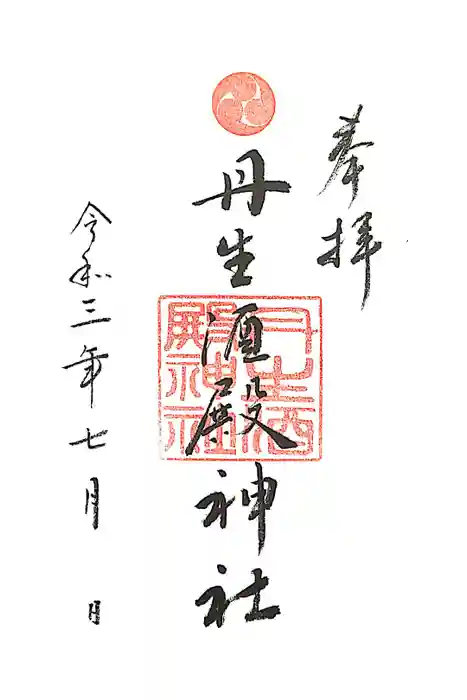 奉拝
丹生酒殿神社
丹生酒殿神社
令和三年七月 日